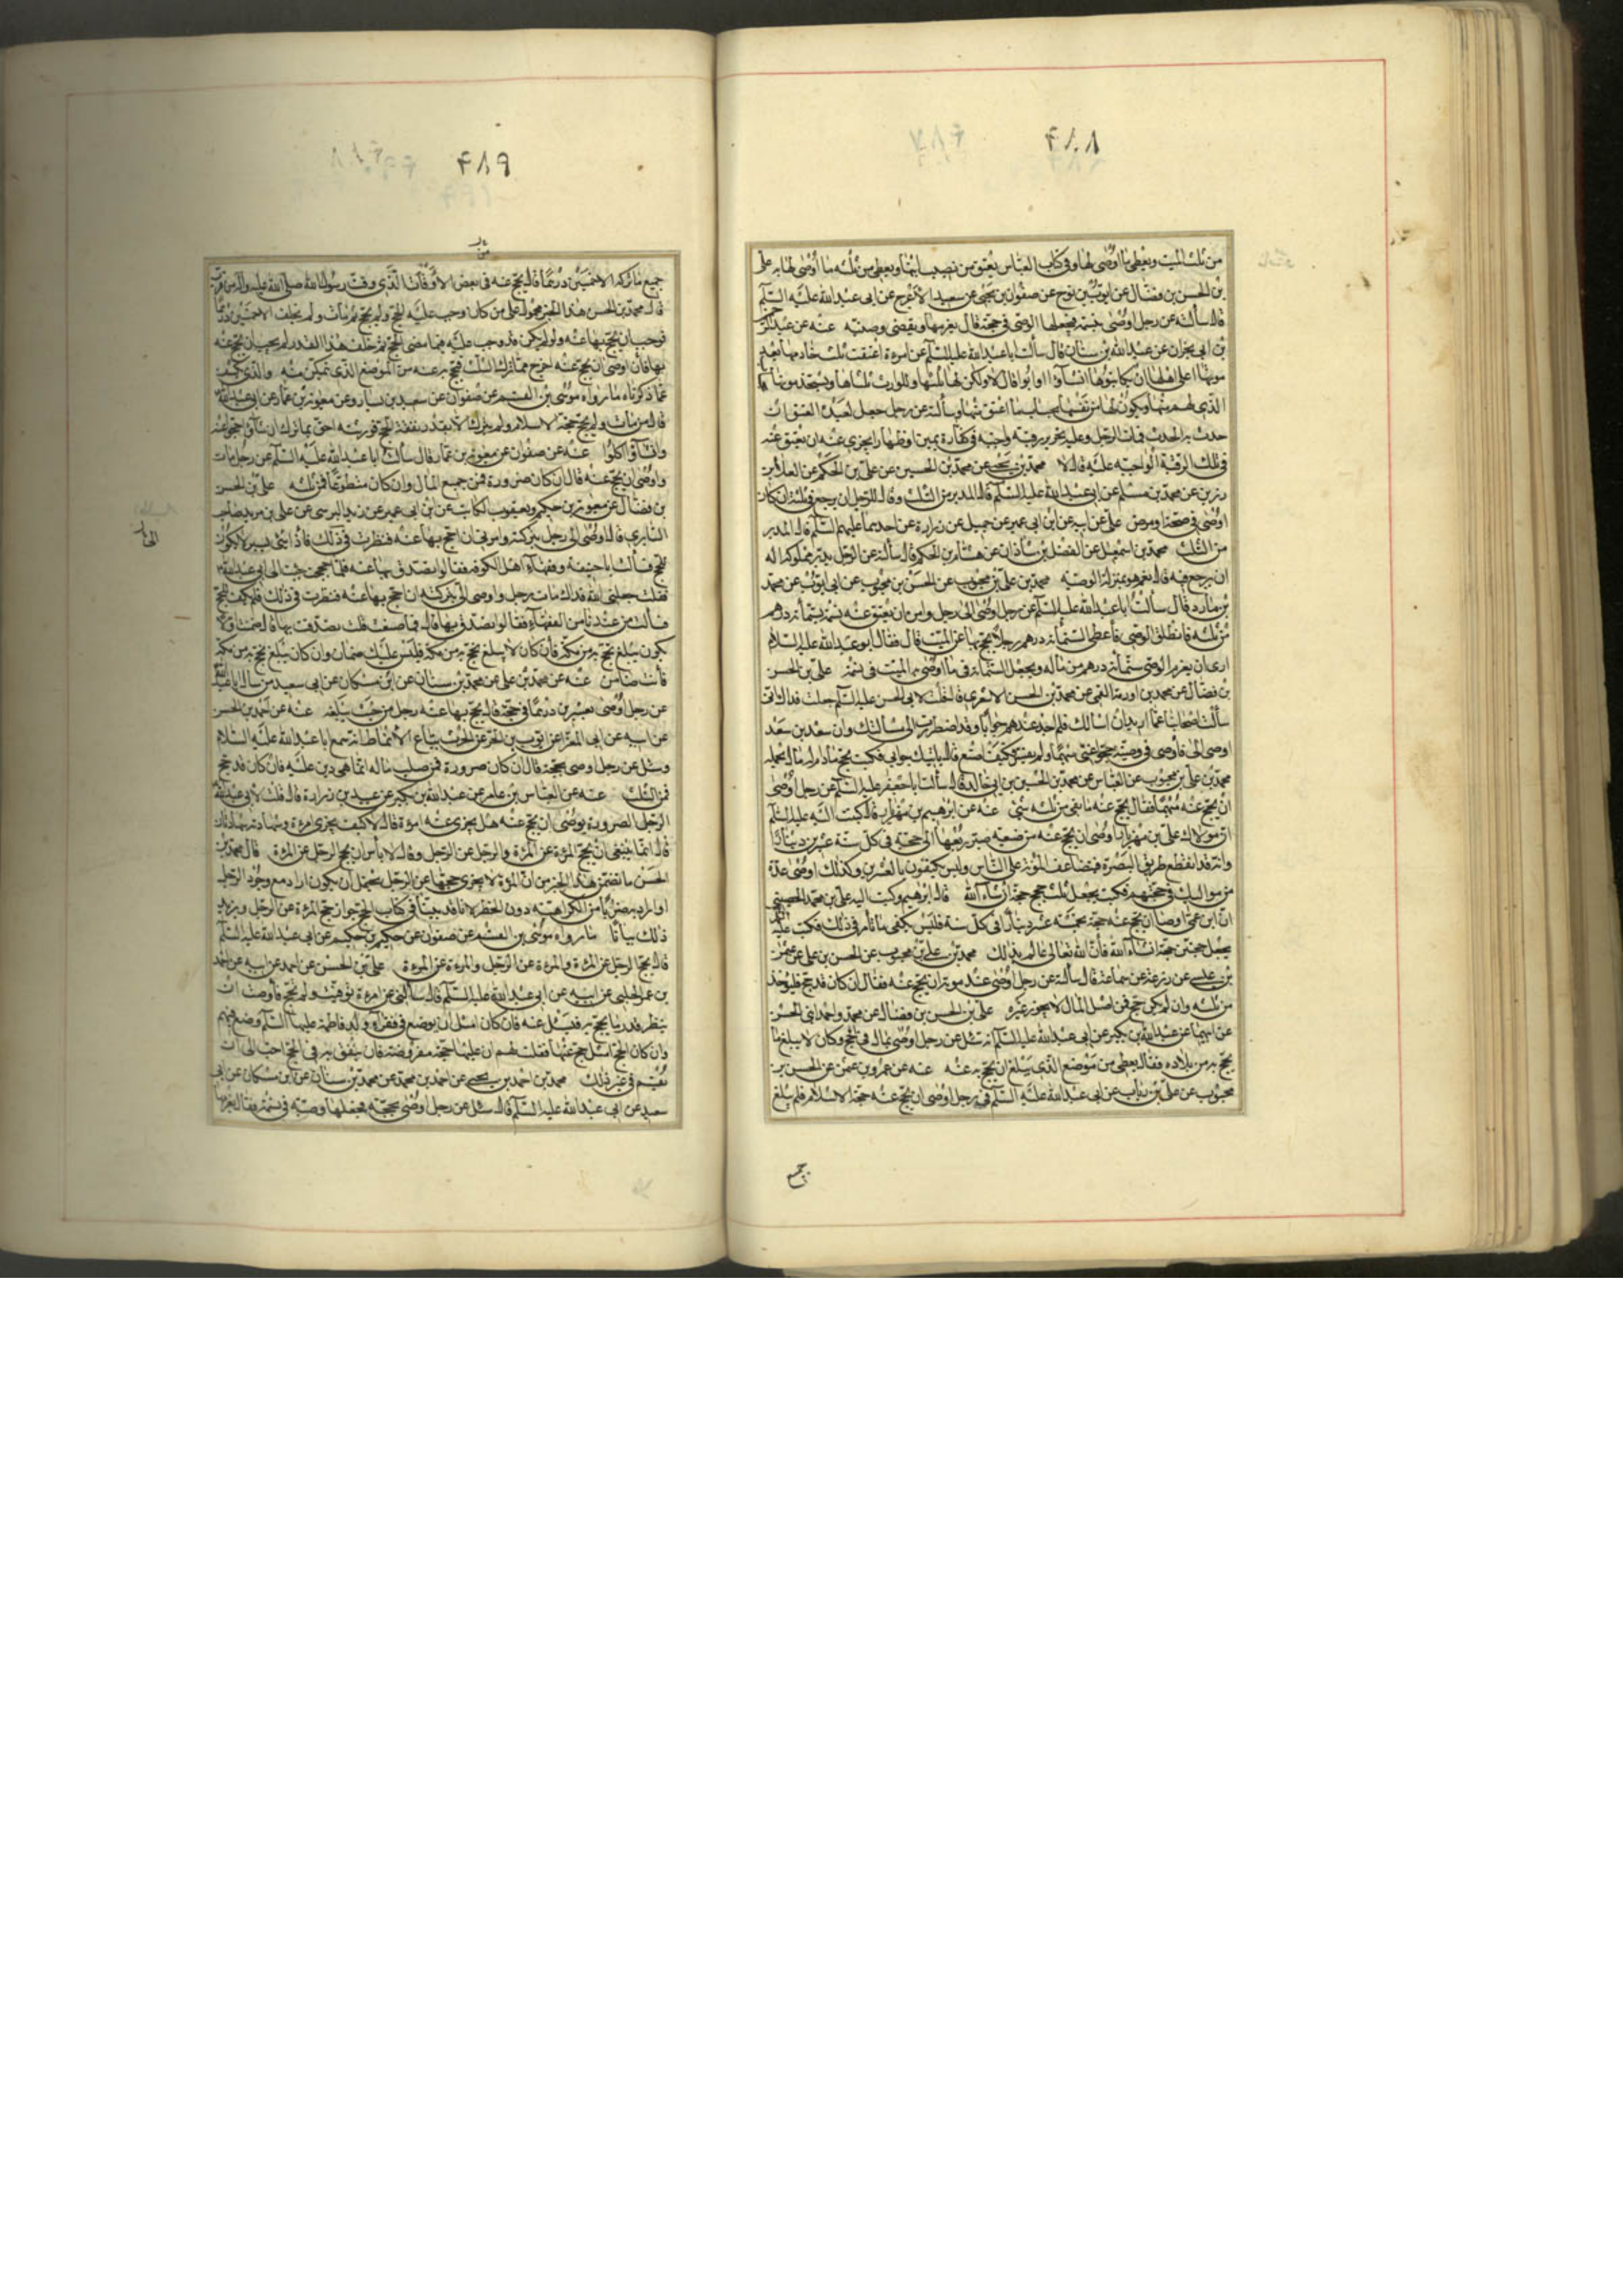 ۴۸۸
من ثلث الميت ويعطى ما اوصى لها وفى كتاب العباس يعتق من نصيب ابنها ويعطى من ثلثه ما اوصى لها به على
بن الحسن بن فضال عن ايوب بن نوح عن صفوان بن يحيى عن سعيد الاعرج عن ابى عبد الله عليه السلم
قال سألته عن رجل اوصى بحجة فجعلها الوصى فى نسمة قال يغرمها ويقضى وصيته عنه عن عبد الرحمن
بن ابى نجران عن عبد الله بن سنان قال سألت ابا عبد الله عليه السلم عن امرءة اعتقت ثلث خادمها بعد
موتها اعلى اهلها ان يكاتبوها ان شاؤا او ابوا قال لا ولكن لها ثلثها وللوارث ثلثاها ويستخدمونها
الذى لهم منها ويكون لها من نفسها بحساب ما اعتق منها وسألته عن رجل جعل لعبده العتق ان
حدث به الحدث فمات الرجل وعليه تحرير رقبة واجبة فى كفارة يمين او ظهار ايجزى عنه ان يعتق عنه
فى تلك الرقبة الواجبة عليه قال لا محمد بن يحيى عن محمد بن الحسين عن على بن الحكم عن العلاء بن
رزين عن محمد بن مسلم عن ابى عبد الله عليه السلم قال المدبر من الثلث وقال للرجل ان يرجع فى ثلثه ان كان
اوصى فى صحة او مرض على عن ابيه عن ابن ابى عمير عن جميل عن زرارة عن احدهما عليهما السلم قال المدبر
من الثلث محمد بن اسمعيل عن الفضل بن شاذان عن هشام بن الحكم قال سألته عن الرجل يدبر مملوكه اله
ان يرجع فيه قال نعم هو بمنزلة الوصية محمد بن على بن محبوب عن الحسن بن محبوب عن ابى ايوب عن محمد
بن مارد قال سألت ابا عبد الله عليه السلم عن رجل اوصى الى رجل وامره ان يعتق عنه نسمة بستمأة درهم
من ثلثه فانطلق الوصى فأعطى الستمأة درهم رجلا يحج بها عن الميت قال فقال ابو عبد الله عليه السلام
ارى ان يغرم الوصى ستمأة درهم من ماله ويجعل الستمأة فى ما اوصى به الميت فى نسمة على بن الحسن
بن فضال عن محمد بن اورمة القمى عن محمد بن الحسن الاشعرى قال قلت لابى الحسن عليه السلم جعلت فداك انى
سألت اصحابنا عما اريد ان اسالك فلم اجد عندهم جوابا وقد اضطررت الى مسألتك وان سعد بن سعد
اوصى الى فأوصى فى وصيته حجوا عنى مبهما ولم يفسر فكيف اصنع قال يأتيك جوابى فكتب يحج مادام له مال يحمله
محمد بن على بن محبوب عن العباس عن محمد بن الحسين بن ابى خالد قال سألت ابا جعفر عليه السلم عن رجل اوصى
ان يحج عنه مبهما فقال يحج عنه ما بقى من ثلثه شئ عنه عن ابرهيم بن مهزيار قال كتبت اليه عليه السلم
ان مولاك على بن مهزيار اوصى ان يحج عنه من ضيعة صير ربعها الى حجة فى كل سنة عشرين دينارا
وانه قد انقطع طريق البصرة فتضاعف المؤنة على الناس وليس يكتفون بالعشرين وكذلك اوصى عدة
من مواليك فى حججهم فكتب يجعل ثلث حجج حجتان ان شاء الله قال ابرهيم وكتب اليه على بن محمد الحصينى
ان ابن عمى اوصى ان يحج عنه حجة بخمسة عشر دينارا فى كل سنة فليس يكفى ما تأمر فى ذلك فكتب عليه
يجعل حجتين حجة ان شاء الله فان الله تعالى عالم بذلك محمد بن على بن محبوب عن الحسن بن على عن عثمن
بن عيسى عن زرعة عن سماعة قال سألته عن رجل اوصى عند موته ان يحج عنه فقال ان كان قد حج فليؤخذ
من ثلثه وان لم يكن حج فمن اصل المال لا يجوز غيره على بن الحسن بن فضال عن محمد واحمد ابنى الحسن
عن ابيهما عن عبد الله بن بكير عن ابى عبد الله عليه السلم انه سئل عن رجل اوصى بماله فى الحج وكان لا يبلغ ما
يحج به من بلاده فقال يعطى من موضع الذى يبلغ ان يحج به عنه عنه عن عمرو بن عثمن عن الحسن بن
محبوب عن على بن رئاب عن ابى عبد الله عليه السلم فى رجل اوصى ان يحج عنه حجة الاسلام فلم يبلغ
جميع
۴۸۹
جميع ما تركه الا خمسين درهما قال يحج عنه فى بعض الاوقات الذى وقت رسول الله صلى الله عليه واله من قرب
قال محمد بن الحسن هذا الخبر محمول على من كان وجب عليه الحج ولم يحج ثم مات ولم يخلف الا خمسين درهما
فوجب ان يحج بها عنه ولو لم يكن قد وجب عليه فيما مضى الحج ثم خلف هذا القدر لم يجب ان يحج عنه
بها فأن اوصى ان يحج عنه اخرج مما ترك الثلث فيحج به عنه من الموضع الذى تمكن منه والذى يكشف
عما ذكرناه ما رواه موسى بن القسم عن صفوان عن سعيد بن يسار وعن معوية بن عمار عن ابى عبد الله
قال من مات ولم يحج حجة الاسلام ولم يترك الا بقدر نفقة الحج فورثته احق بما ترك ان شاؤا حجوا عنه
وان شاؤا اكلوا عنه عن صفوان عن معوية بن عمار قال سألت ابا عبد الله عليه السلم عن رجل مات
واوصى ان يحج عنه قال ان كان صرورة فمن جميع المال وان كان متطوعا فمن ثلثه على بن الحسن
بن فضال عن معوية بن حكيم ويعقوب الكاتب عن ابن ابى عمير عن زيد النرسى عن على بن مزيد صاحب
السابرى قال اوصى الى رجل بتركته وامرنى ان احج بها عنه فنظرت فى ذلك فاذا شئ يسير لا يكون
للحج فسألت ابا حنيفة وفقهاء اهل الكوفة فقالوا تصدق بها عنه فلما حججت جئت الى ابى عبد الله
فقلت جعلنى الله فداك مات رجل واوصى الى بتركته ان احج بها عنه فنظرت فى ذلك فلم يكف للحج
فسألت من عندنا من الفقهاء فقالوا تصدق بها قال فما صنعت قلت تصدقت بها قال ضمنت الا ان
يكون يبلغ يحج به من مكة فأن كان لا يبلغ يحج به من مكة فليس عليك ضمان وان كان يبلغ يحج به من مكة
فأنت ضامن عنه عن محمد بن على عن محمد بن سنان عن ابن مسكان عن ابى سعيد عمن سال ابا عبد الله
عن رجل اوصى بعشرين درهما فى حجة قال يحج بها عنه رجل من حيث يبلغه عنه عن احمد بن الحسن
عن ابيه عن ابى المغرا عن ايوب بن الحر عن الحرث بياع الانماط انه سمع ابا عبد الله عليه السلام
وسئل عن رجل اوصى بحجة قال ان كان صرورة فمن صلب ماله انما هى دين عليه فان كان قد حج
فمن الثلث عنه عن العباس بن عامر عن عبد الله بن بكير عن عبيد بن زرارة قال قلت لابى عبد الله
الرجل الصرورة يوصى ان يحج عنه هل يجزى عنه امرءة قال لا كيف يجزى امرءة وشهادته شهادتان
قال انما ينبغى ان يحج المرءة عن المرءة والرجل عن الرجل وقال لا بأس ان يحج الرجل عن المرءة قال محمد بن
الحسن ما تضمن هذا الخبر من ان المرءة لا يجزى حجتها عن الرجل يحتمل ان يكون اراد مع وجود الرجل
او المراد به ضربا من الكراهية دون الحظر لانا قد بينا فى كتاب الحج جواز حج المرءة عن الرجل ويزيد
ذلك بيانا ما رواه موسى بن القسم عن صفوان عن حكيم بن حكيم عن ابى عبد الله عليه السلم
قال يحج الرجل عن المرءة والمرءة عن الرجل والمرءة عن المرءة على بن الحسن عن احمد عن ابيه عن احمد
بن عمر الحلبى عن ابيه عن ابى عبد الله عليه السلم قال سألنى عن امرءة توفيت ولم تحج فأوصت ان
ينظر قدر ما يحج به فسئل عنه فان كان امثل ان يوضع فى فقراء ولد فاطمة عليها السلم وضع فيهم
وان كان الحج امثل حج عنها فقلت لهم ان عليها حجة مفروضة فان ينفق به فى الحج احب الى ان
يقسم فى غير ذلك محمد بن احمد بن يحيى عن احمد بن محمد عن محمد بن سنان عن ابن مسكان عن ابى
سعيد عن ابى عبد الله عليه السلم قال سئل عن رجل اوصى بحجة فجعلها وصيه فى نسمة فقال يغرمها